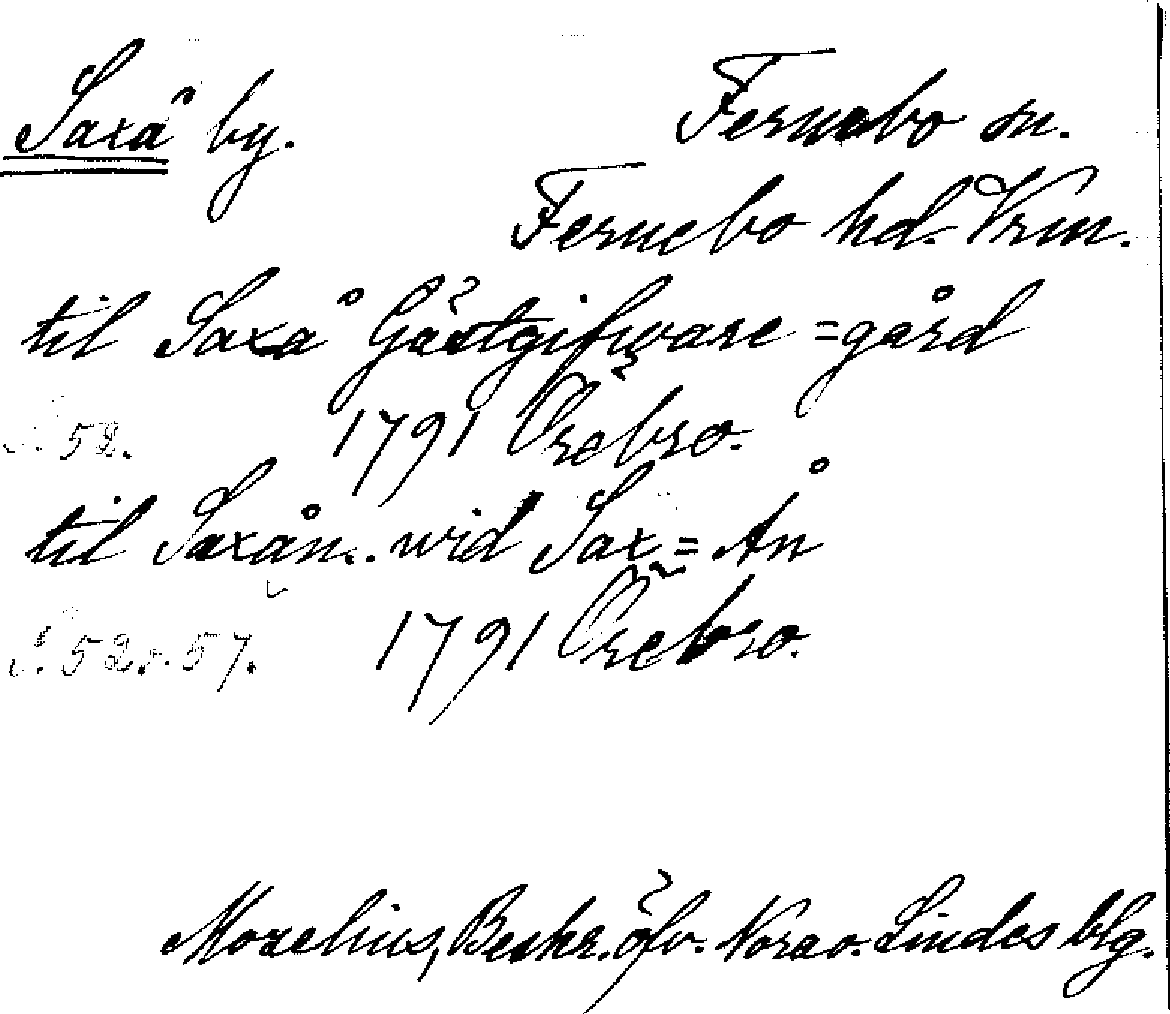 Saxå by. Fernebo sn.
Fernebo hd. Vrm.
til Saxå Gästgifware=gård
S. 52. 1791 Örebro.
til Saxån.. wid Sax=Ån
S. 52 o. 57. 1791 Örebro.
Morelius, Beskr. öfv. Nora o. Lindes blg.